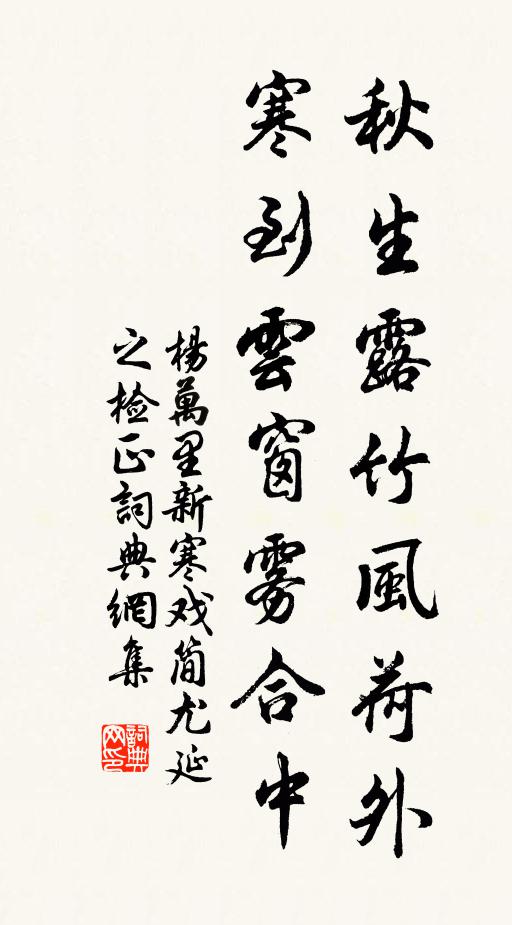 秋生露竹風荷外
寒到雲窗雾合中
楊萬里新寒戏简尤延
之检正詞典網集
詞典網印